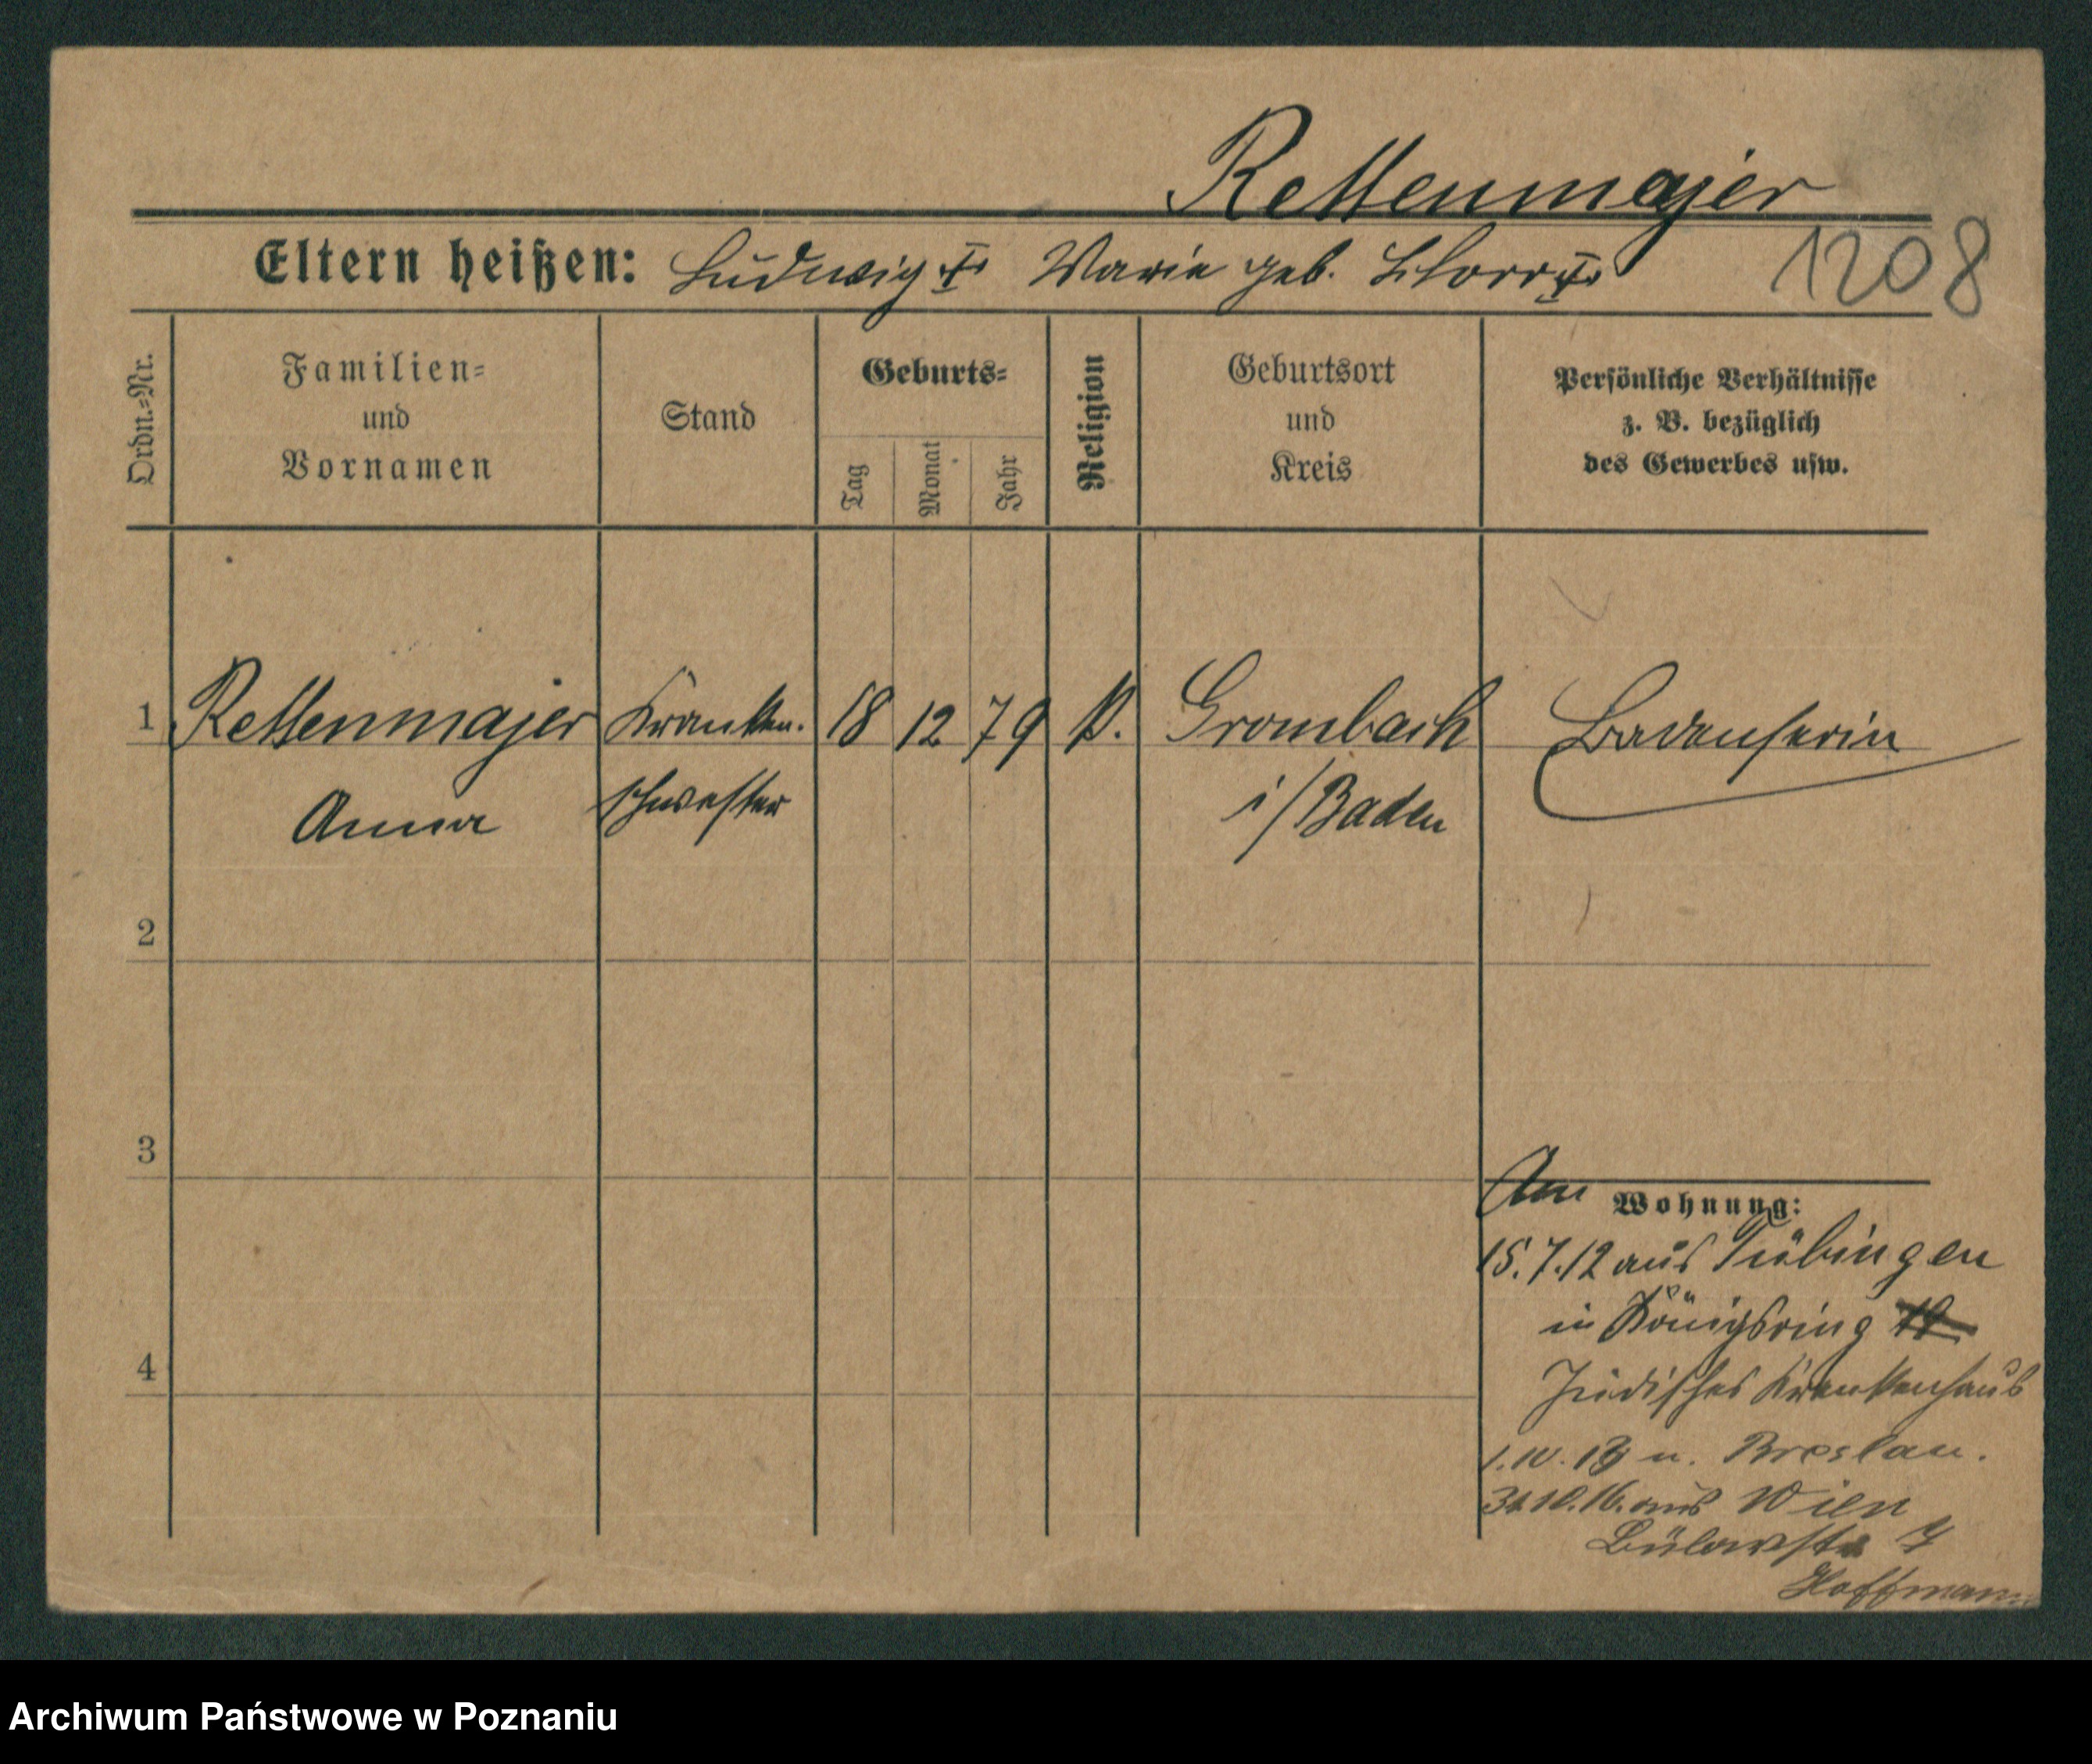 Rettenmajer
Eltern heißen: Ludwig Marie geb.
1208
Ordn.-Nr.
Familien-
und
Vornamen
Stand
Geburts-
Tag
Monat
Jahr
Religion
Geburtsort
und
Kreis
Persönliche Verhältnisse
z. B. bezüglich
des Gewerbes usw.
1 Rettenmajer Kranken. 18 12 79 Grombach Badenserin
Anna schwester i/Baden
2
3
4
Am Wohnung:
15.7.12 aus Tübingen
in Königsring
Jüdisches Krankenhaus
1.10. n. Breslau.
10.16. aus Wien
Bülowstr
Hoffmann
Archiwum Państwowe w Poznaniu